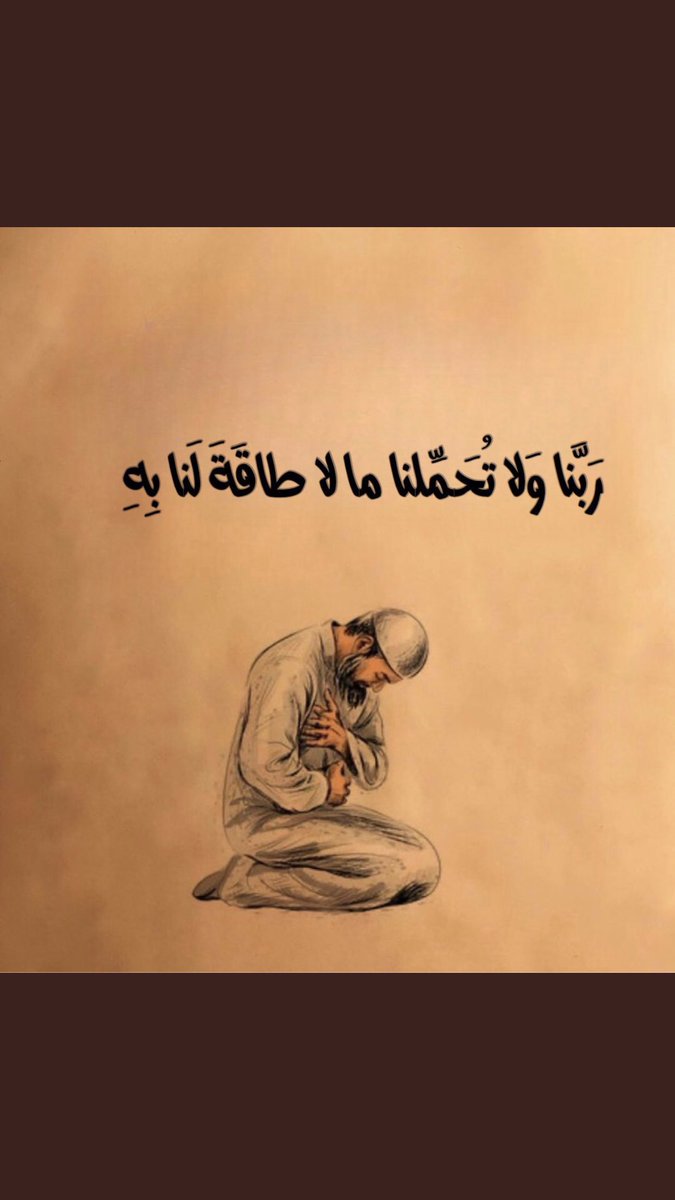 رَبَّنا وَلا تُحَمِّلنا ما لا طاقَةَ لَنا بِهِ